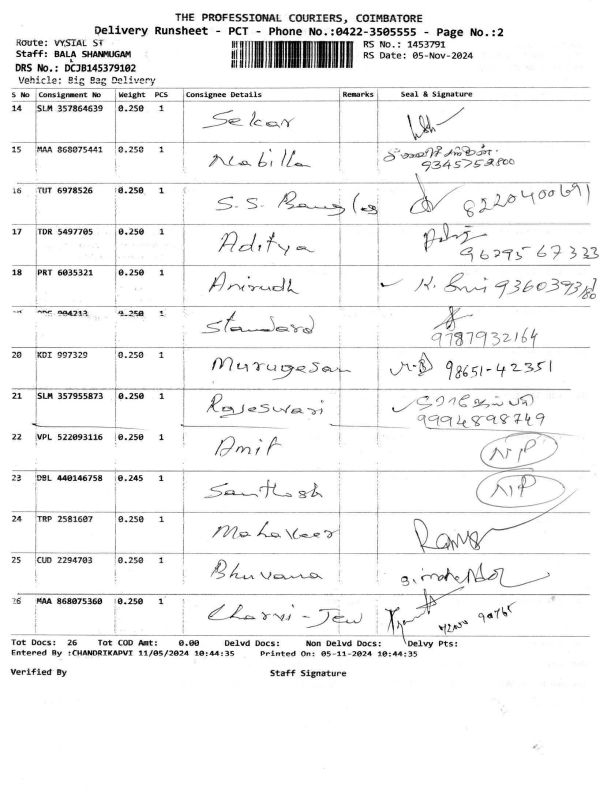 THE PROFESSIONAL COURIERS, COIMBATORE
Delivery Runsheet - PCT - Phone No.:0422-3505555 - Page No.:2
Route: VYSIAL ST
RS No.: 1453791
Staff: BALA SHANMUGAM
RS Date: 05-Nov-2024
DRS No.: DCJB145379102
Vehicle: Big Bag Delivery
S No Consignment No Weight PCS Consignee Details Remarks Seal & Signature
14 SLM 357864639 0.250 1 Sekar
15 MAA 868075441 0.250 1 Nabilla 9345752800
16 TUT 6978526 0.250 1 S.S. Bangles 8220400691
17 TDR 5497705 0.250 1 Aditya 9629567333
18 PRT 6035321 0.250 1 Anirudh K. 9360393180
904213 0.250 1 Standard 9787932164
20 KDI 997329 0.250 1 Murugesan 98651-42351
21 SLM 357955873 0.250 1 Rajeswari 9994898749
22 VPL 522093116 0.250 1 Amit N/P
23 DBL 440146758 0.245 1 Santhosh N/P
24 TRP 2581607 0.250 1 Mahaveer
25 CUD 2294703 0.250 1 Bhuvana
26 MAA 868075360 0.250 1 Charvi - Jew
Tot Docs: 26 Tot COD Amt: 0.00 Delvd Docs: Non Delvd Docs: Delvy Pts:
Entered By :CHANDRIKAPVI 11/05/2024 10:44:35 Printed On: 05-11-2024 10:44:35
Verified By Staff Signature